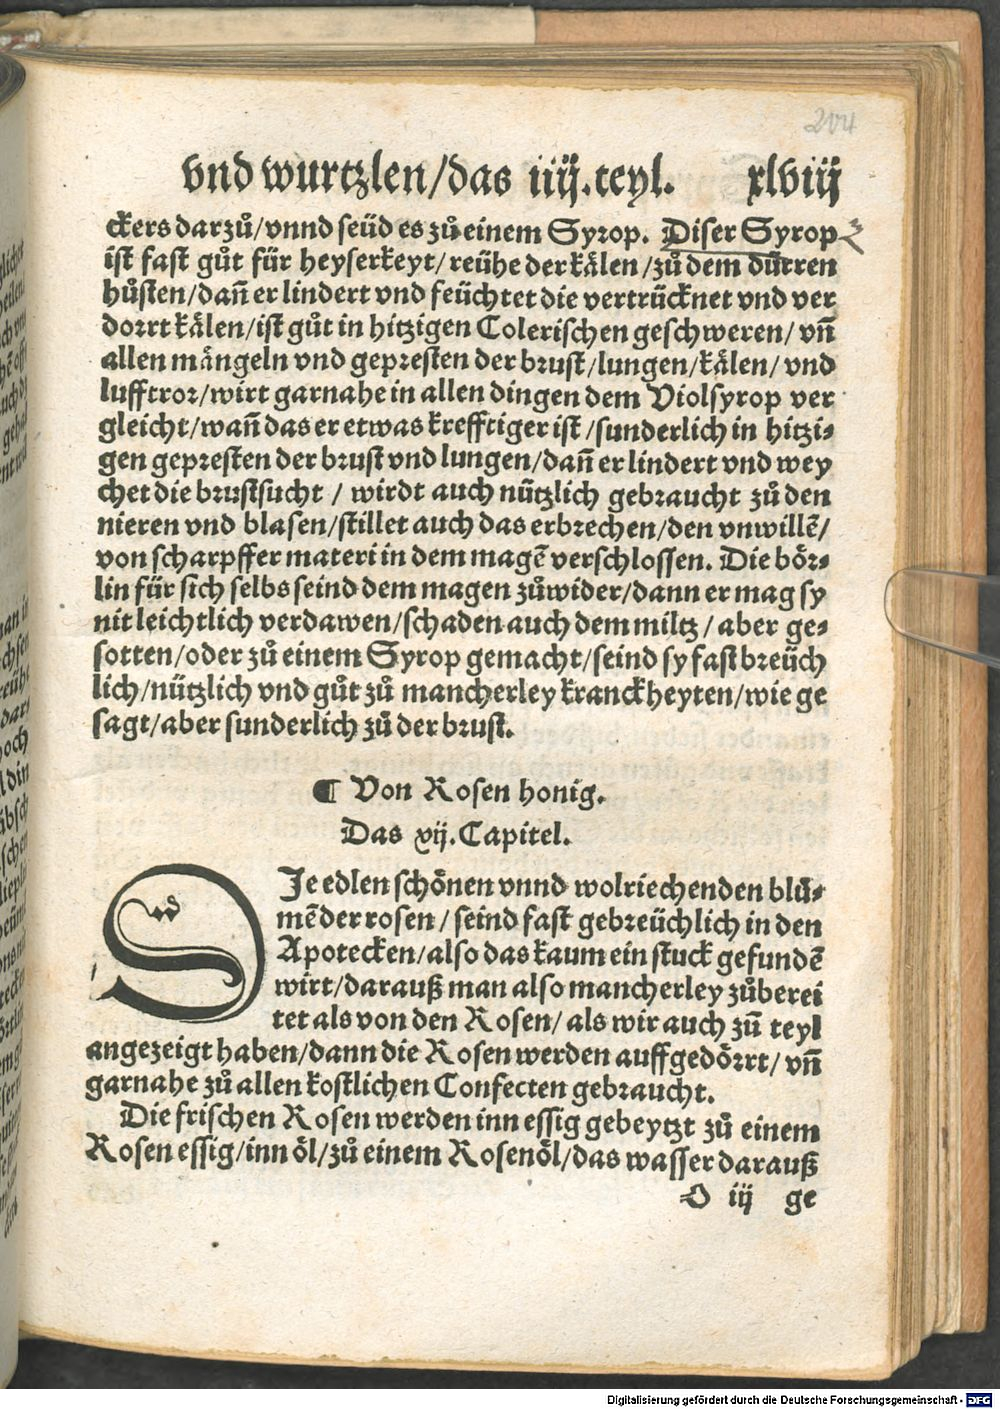 204
vnd wurtzlen/das iiij.teyl. xlviij
ckers darzů/vnnd seüd es zů einem Syrop. Diser Syrop
ist fast gůt für heyserkeyt/reühe der kälen/zů dem dürren
hůsten/dañ er lindert vnd feüchtet die vertrücknet vnd ver
dorrt kälen/ist gůt in hitzigen Colerischen geschweren/vñ
allen mängeln vnd gepresten der brust/lungen/kälen/vnd
lufftror/wirt garnahe in allen dingen dem Violsyrop ver
gleicht/wañ das er etwas krefftiger ist/sunderlich in hitzi⸗
gen gepresten der brust vnd lungen/dañ er lindert vnd wey
chet die brustsucht / wirdt auch nützlich gebraucht zů den
nieren vnd blasen/stillet auch das erbrechen/den vnwillē/
von scharpffer materi in dem magē verschlossen. Die bör⸗
lin für sich selbs seind dem magen zůwider/dann er mag sy
nit leichtlich verdawen/schaden auch dem miltz/aber ge⸗
sotten/oder zů einem Syrop gemacht/seind sy fast breüch
lich/nützlich vnd gůt zů mancherley kranckheyten/wie ge
sagt/aber sunderlich zů der brust.
¶ Von Rosen honig.
Das vij.Capitel.
DJe edlen schönen vnnd wolriechenden blů⸗
mē der rosen/seind fast gebreüchlich in den
Apotecken/also das kaum ein stuck gefundē
wirt/darauß man also mancherley zůberei
tet als von den Rosen/als wir auch zū teyl
angezeigt haben/dann die Rosen werden auffgedörrt/vñ
garnahe zů allen kostlichen Confecten gebraucht.
Die frischen Rosen werden inn essig gebeytzt zů einem
Rosen essig/inn öl/zů einem Rosenöl/das wasser darauß
O iij ge
Digitalisierung gefördert durch die Deutsche Forschungsgemeinschaft - DFG